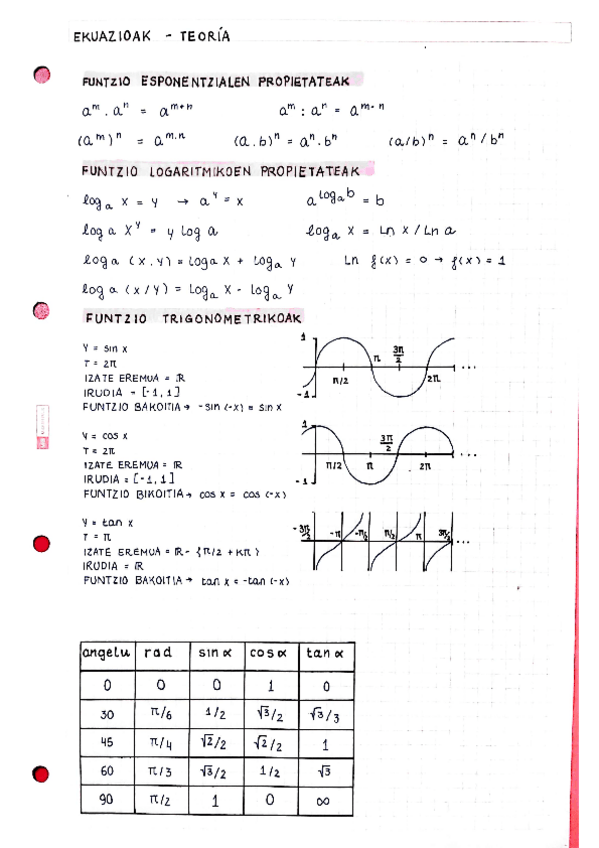 EKUAZIOAK - TEORÍA
FUNTZIO ESPONENTZIALEN PROPIETATEAK
aᵐ . aⁿ = aᵐ⁺ⁿ    aᵐ : aⁿ = aᵐ⁻ⁿ
(aᵐ)ⁿ = aᵐ·ⁿ    (a.b)ⁿ = aⁿ.bⁿ    (a/b)ⁿ = aⁿ/bⁿ
FUNTZIO LOGARITMIKOEN PROPIETATEAK
logₐ x = y → aʸ = x    a^logₐb = b
log a xʸ = y log a    logₐ x = Ln x / Ln a
log a (x.y) = Loga x + Loga y    Ln f(x) = 0 → f(x) = 1
log a (x/y) = Logₐ x - Logₐ y
FUNTZIO TRIGONOMETRIKOAK
y = sin x
T = 2π
IZATE EREMUA = ℝ
IRUDIA = [-1,1]
FUNTZIO BAKOITIA → -sin (-x) = sin x
1
-1
π/2
π
3π/2
2π
...
y = cos x
T = 2π
IZATE EREMUA = ℝ
IRUDIA = [-1,1]
FUNTZIO BIKOITIA → cos x = cos (-x)
1
-1
π/2
π
3π/2
2π
...
y = tan x
T = π
IZATE EREMUA = ℝ - {π/2 + Kπ}
IRUDIA = ℝ
FUNTZIO BAKOITIA → tan x = -tan (-x)
-3π/2
-π
-π/2
π/2
π
3π/2
...
angelu rad sin α cos α tan α
0 0 0 1 0
30 π/6 1/2 √3/2 √3/3
45 π/4 √2/2 √2/2 1
60 π/3 √3/2 1/2 √3
90 π/2 1 0 ∞